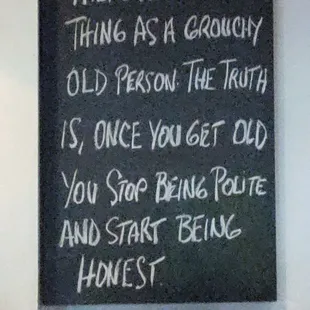 THING AS A GROUCHY
OLD PERSON. THE TRUTH
IS, ONCE YOU GET OLD
YOU STOP BEING POLITE
AND START BEING
HONEST.